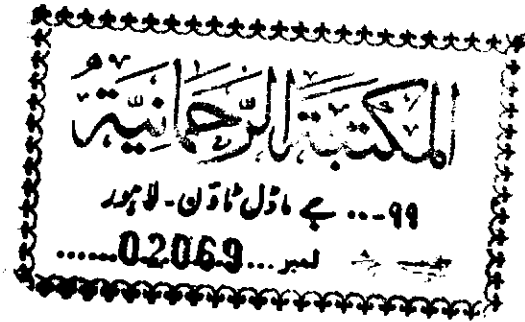 المكتبة الرحمانية
۹۹... جے ماڈل ٹاؤن - لاہور
نمبر...02069......